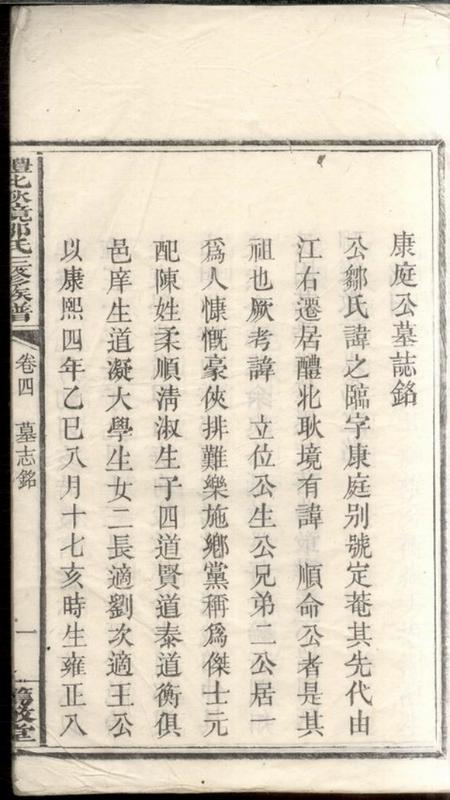 康庭公墓誌銘
公鄒氏諱之臨字康庭别號定菴其先代由
江右遷居醴北耿境有諱　順命公者是其
祖也厥考諱　立位公生公兄弟二公居一
為人慷慨豪俠排難樂施鄉黨稱為傑士元
配陳姓柔順淸淑生子四道賢道泰道衡俱
邑庠生道凝大學生女二長適劉次適王公
以康熙四年乙巳八月十七亥時生雍正八
醴北耿境鄒氏三修族譜
卷四　墓志銘
一